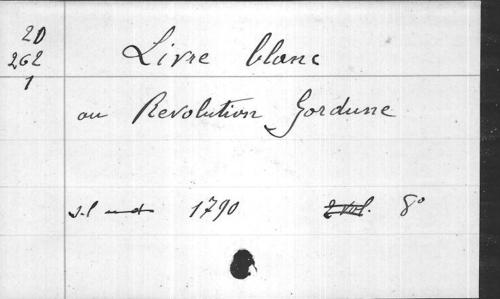 2D
262
1
Livre blanc
ou Revolution Gordune
s.l und 1790 2 vol. 8°